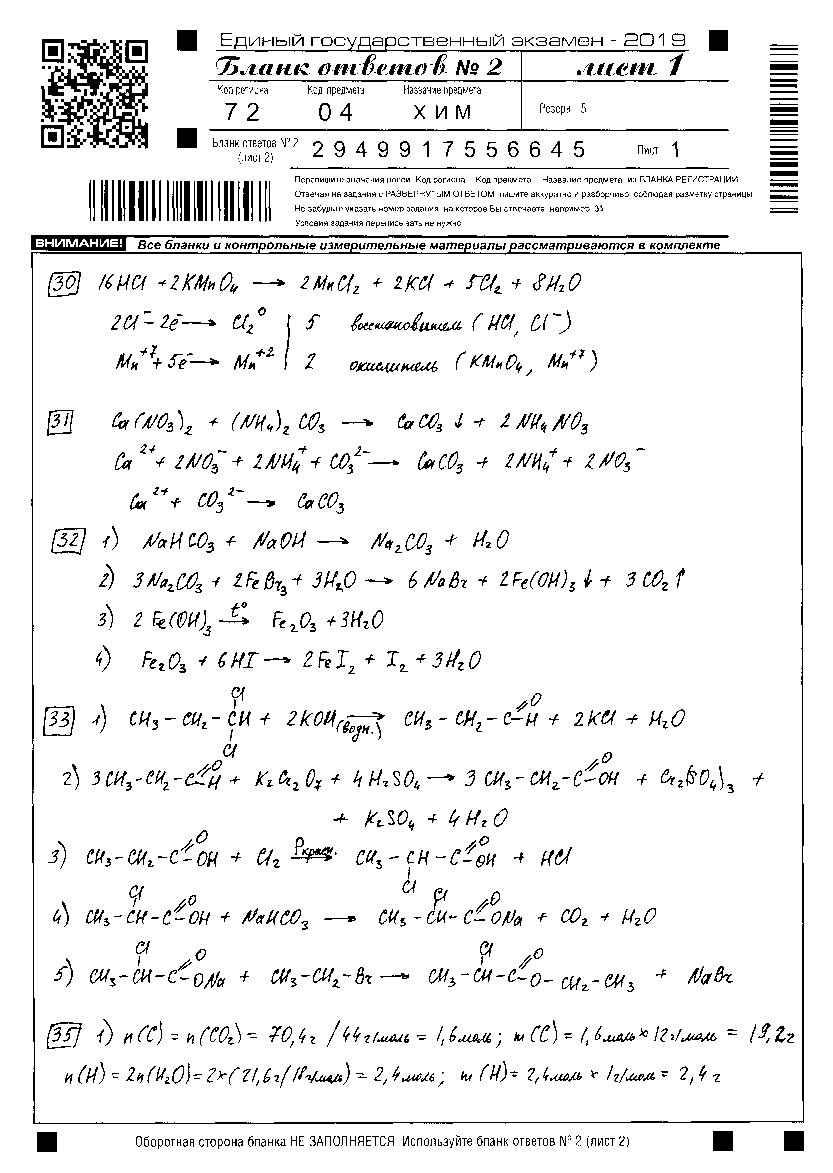 Единый государственный экзамен - 2019
Бланк ответов № 2 лист 1
Код региона Код предмета Название предмета
7 2 0 4 Х И М Резерв - 5
Бланк ответов № 2 (лист 2) 2 9 4 9 9 1 7 5 5 6 6 4 5 Лист 1
Перепишите значения полей Код региона Код предмета Название предмета из БЛАНКА РЕГИСТРАЦИИ
Отвечая на задания с РАЗВЕРНУТЫМ ОТВЕТОМ пишите аккуратно и разборчиво соблюдая разметку страницы
Не забудьте указать номер задания на которое Вы отвечаете например 31
Условия задания переписывать не нужно
ВНИМАНИЕ! Все бланки и контрольные измерительные материалы рассматриваются в комплекте
30 16HCl + 2KMnO₄ → 2MnCl₂ + 2KCl + 5Cl₂ + 8H₂O
2Cl⁻ - 2e⁻ → Cl₂⁰ | 5 восстановитель (HCl, Cl⁻)
Mn⁺⁷ + 5e⁻ → Mn⁺² | 2 окислитель (KMnO₄, Mn⁺⁷)
31 Ca(NO₃)₂ + (NH₄)₂CO₃ → CaCO₃↓ + 2NH₄NO₃
Ca²⁺ + 2NO₃⁻ + 2NH₄⁺ + CO₃²⁻ → CaCO₃ + 2NH₄⁺ + 2NO₃⁻
Ca²⁺ + CO₃²⁻ → CaCO₃
32 1) NaHCO₃ + NaOH → Na₂CO₃ + H₂O
2) 3Na₂CO₃ + 2FeBr₃ + 3H₂O → 6NaBr + 2Fe(OH)₃↓ + 3CO₂↑
3) 2Fe(OH)₃ t° → Fe₂O₃ + 3H₂O
4) Fe₂O₃ + 6HI → 2FeI₂ + I₂ + 3H₂O
Cl
33 1) CH₃-CH₂-CH + 2KOH (водн.) → CH₃-CH₂-C=O-H + 2KCl + H₂O
Cl
2) 3CH₃-CH₂-C=O-H + K₂Cr₂O₇ + 4H₂SO₄ → 3CH₃-CH₂-C=O-OH + Cr₂(SO₄)₃ +
+ K₂SO₄ + 4H₂O
3) CH₃-CH₂-C=O-OH + Cl₂ Pкрасн. → CH₃-CH-C=O-OH + HCl
Cl
Cl Cl
4) CH₃-CH-C=O-OH + NaHCO₃ → CH₃-CH-C=O-ONa + CO₂ + H₂O
Cl Cl
5) CH₃-CH-C=O-ONa + CH₃-CH₂-Br → CH₃-CH-C=O-O-CH₂-CH₃ + NaBr
35 1) n(C) = n(CO₂) = 70,4г / 44г/моль = 1,6моль; m(C) = 1,6моль × 12г/моль = 19,2г
n(H) = 2n(H₂O) = 2×(21,6г/18г/моль) = 2,4моль; m(H) = 2,4моль × 1г/моль = 2,4г
Оборотная сторона бланка НЕ ЗАПОЛНЯЕТСЯ Используйте бланк ответов № 2 (лист 2)